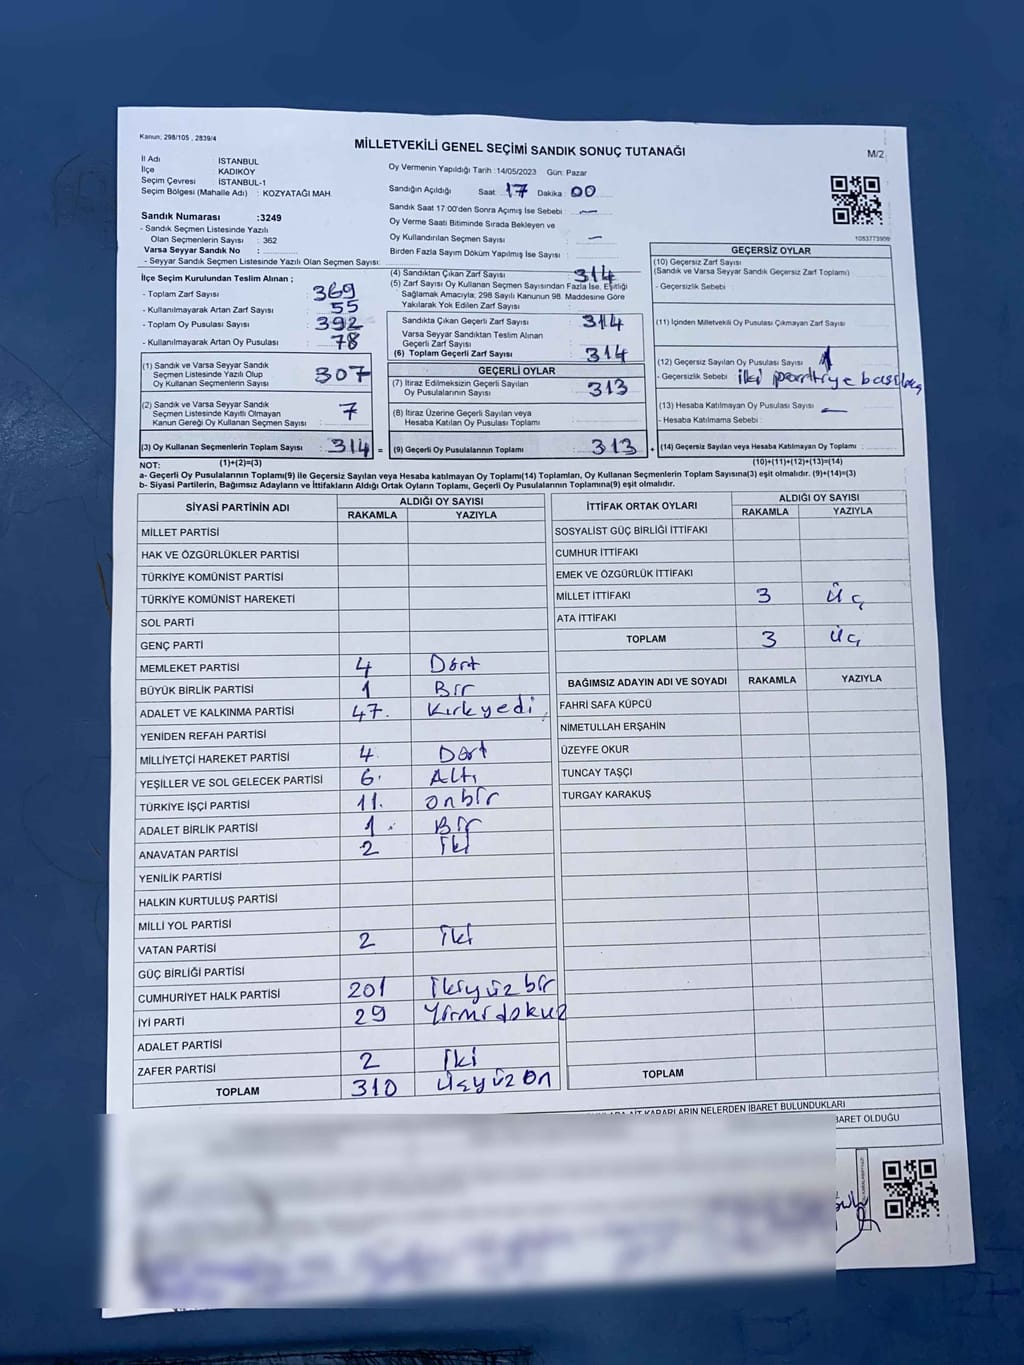 Kanun; 298/105 , 2839/4
MİLLETVEKİLİ GENEL SEÇİMİ SANDIK SONUÇ TUTANAĞI
M/2
İl Adı : İSTANBUL
İlçe : KADIKÖY
Seçim Çevresi : İSTANBUL-1
Seçim Bölgesi (Mahalle Adı) : KOZYATAĞI MAH.
Sandık Numarası :3249
- Sandık Seçmen Listesinde Yazılı
Olan Seçmenlerin Sayısı : 362
Varsa Seyyar Sandık No :
- Seyyar Sandık Seçmen Listesinde Yazılı Olan Seçmen Sayısı:
Oy Vermenin Yapıldığı Tarih :14/05/2023 Gün: Pazar
Sandığın Açıldığı Saat : 17 Dakika : 00
Sandık Saat 17:00'den Sonra Açımış İse Sebebi : —
Oy Verme Saati Bitiminde Sırada Bekleyen ve
Oy Kullandırılan Seçmen Sayısı : —
Birden Fazla Sayım Döküm Yapılmış İse Sayısı :
1083773909
İlçe Seçim Kurulundan Teslim Alınan ;
- Toplam Zarf Sayısı : 369
- Kullanılmayarak Artan Zarf Sayısı : 55
- Toplam Oy Pusulası Sayısı : 392
- Kullanılmayarak Artan Oy Pusulası : 78
(1) Sandık ve Varsa Seyyar Sandık
Seçmen Listesinde Yazılı Olup
Oy Kullanan Seçmenlerin Sayısı : 307
(2) Sandık ve Varsa Seyyar Sandık
Seçmen Listesinde Kayıtlı Olmayan
Kanun Gereği Oy Kullanan Seçmen Sayısı : 7
(3) Oy Kullanan Seçmenlerin Toplam Sayısı : 314 =
(1)+(2)=(3)
(4) Sandıktan Çıkan Zarf Sayısı : 314
(5) Zarf Sayısı Oy Kullanan Seçmen Sayısından Fazla İse, Eşitliği
Sağlamak Amacıyla; 298 Sayılı Kanunun 98. Maddesine Göre
Yakılarak Yok Edilen Zarf Sayısı :
Sandıkta Çıkan Geçerli Zarf Sayısı : 314
Varsa Seyyar Sandıktan Teslim Alınan
Geçerli Zarf Sayısı
(6) Toplam Geçerli Zarf Sayısı : 314
GEÇERLİ OYLAR
(7) İtiraz Edilmeksizin Geçerli Sayılan
Oy Pusulalarının Sayısı : 313
(8) İtiraz Üzerine Geçerli Sayılan veya
Hesaba Katılan Oy Pusulası Toplamı :
(9) Geçerli Oy Pusulalarının Toplamı : 313 +
GEÇERSİZ OYLAR
(10) Geçersiz Zarf Sayısı
(Sandık ve Varsa Seyyar Sandık Geçersiz Zarf Toplamı)
- Geçersizlik Sebebi :
(11) İçinden Milletvekili Oy Pusulası Çıkmayan Zarf Sayısı :
(12) Geçersiz Sayılan Oy Pusulası Sayısı : 1
- Geçersizlik Sebebi : iki partiye
(13) Hesaba Katılmayan Oy Pusulası Sayısı : —
- Hesaba Katılmama Sebebi :
(14) Geçersiz Sayılan veya Hesaba Katılmayan Oy Toplamı :
(10)+(11)+(12)+(13)=(14)
NOT:
a- Geçerli Oy Pusulalarının Toplamı(9) ile Geçersiz Sayılan veya Hesaba katılmayan Oy Toplamı(14) Toplamları, Oy Kullanan Seçmenlerin Toplam Sayısına(3) eşit olmalıdır. (9)+(14)=(3)
b- Siyasi Partilerin, Bağımsız Adayların ve İttifakların Aldığı Ortak Oyların Toplamı, Geçerli Oy Pusulalarının Toplamına(9) eşit olmalıdır.
SİYASİ PARTİNİN ADI ALDIĞI OY SAYISI
RAKAMLA YAZIYLA
MİLLET PARTİSİ
HAK VE ÖZGÜRLÜKLER PARTİSİ
TÜRKİYE KOMÜNİST PARTİSİ
TÜRKİYE KOMÜNİST HAREKETİ
SOL PARTİ
GENÇ PARTİ
MEMLEKET PARTİSİ 4 Dört
BÜYÜK BİRLİK PARTİSİ 1 Bir
ADALET VE KALKINMA PARTİSİ 47. Kırkyedi
YENİDEN REFAH PARTİSİ
MİLLİYETÇİ HAREKET PARTİSİ 4 Dört
YEŞİLLER VE SOL GELECEK PARTİSİ 6. Altı
TÜRKİYE İŞÇİ PARTİSİ 11. onbir
ADALET BİRLİK PARTİSİ 1 . Bir
ANAVATAN PARTİSİ 2 İki
YENİLİK PARTİSİ
HALKIN KURTULUŞ PARTİSİ
MİLLİ YOL PARTİSİ
VATAN PARTİSİ 2 iki
GÜÇ BİRLİĞİ PARTİSİ
CUMHURİYET HALK PARTİSİ 201 ikiyüzbir
İYİ PARTİ 29 Yirmidokuz
ADALET PARTİSİ
ZAFER PARTİSİ 2 İki
TOPLAM 310 Üçyüz on
İTTİFAK ORTAK OYLARI ALDIĞI OY SAYISI
RAKAMLA YAZIYLA
SOSYALİST GÜÇ BİRLİĞİ İTTİFAKI
CUMHUR İTTİFAKI
EMEK VE ÖZGÜRLÜK İTTİFAKI
MİLLET İTTİFAKI 3 Üç
ATA İTTİFAKI
TOPLAM 3 Üç
BAĞIMSIZ ADAYIN ADI VE SOYADI RAKAMLA YAZIYLA
FAHRİ SAFA KÜPCÜ
NİMETULLAH ERŞAHİN
ÜZEYFE OKUR
TUNCAY TAŞÇI
TURGAY KARAKUŞ
TOPLAM
KARARLARIN NELERDEN İBARET BULUNDUKLARI
İBARET OLDUĞU